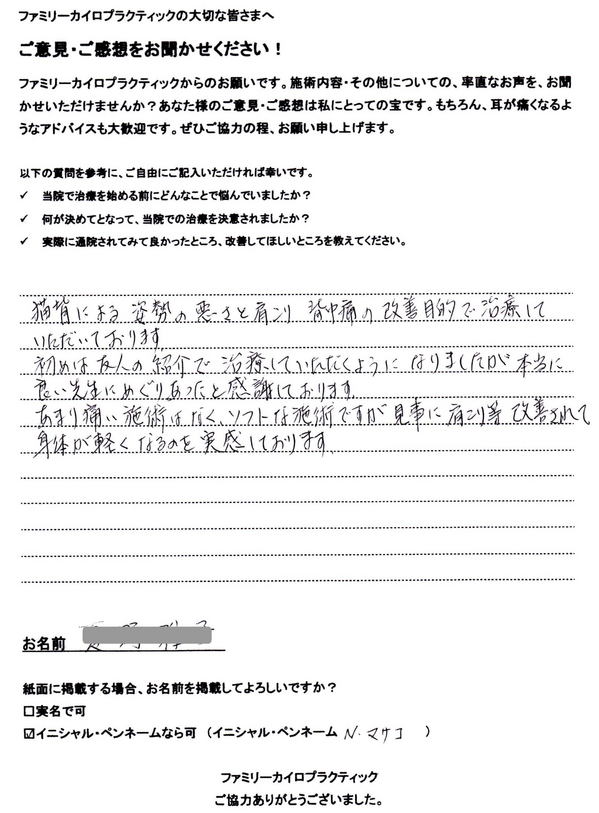 ファミリーカイロプラクティックの大切な皆さまへ
ご意見・ご感想をお聞かせください！
ファミリーカイロプラクティックからのお願いです。施術内容・その他についての、率直なお声を、お聞
かせいただけませんか？あなた様のご意見・ご感想は私にとっての宝です。もちろん、耳が痛くなるよ
うなアドバイスも大歓迎です。ぜひご協力の程、お願い申し上げます。
以下の質問を参考に、ご自由にご記入いただければ幸いです。
✓ 当院で治療を始める前にどんなことで悩んでいましたか？
✓ 何が決めてとなって、当院での治療を決意されましたか？
✓ 実際に通院されてみて良かったところ、改善してほしいところを教えてください。
猫背による姿勢の悪さと肩こり 背中痛の改善目的で治療して
いただいております
初めは友人の紹介で治療していただくようになりましたが本当に
良い先生にめぐりあったと感謝しております
あまり痛い施術はなく、ソフトな施術ですが見事に肩こり等改善されて
身体が軽くなるのを実感しております
お名前
紙面に掲載する場合、お名前を掲載してよろしいですか？
□実名で可
☑イニシャル・ペンネームなら可 （イニシャル・ペンネーム N.マサコ ）
ファミリーカイロプラクティック
ご協力ありがとうございました。